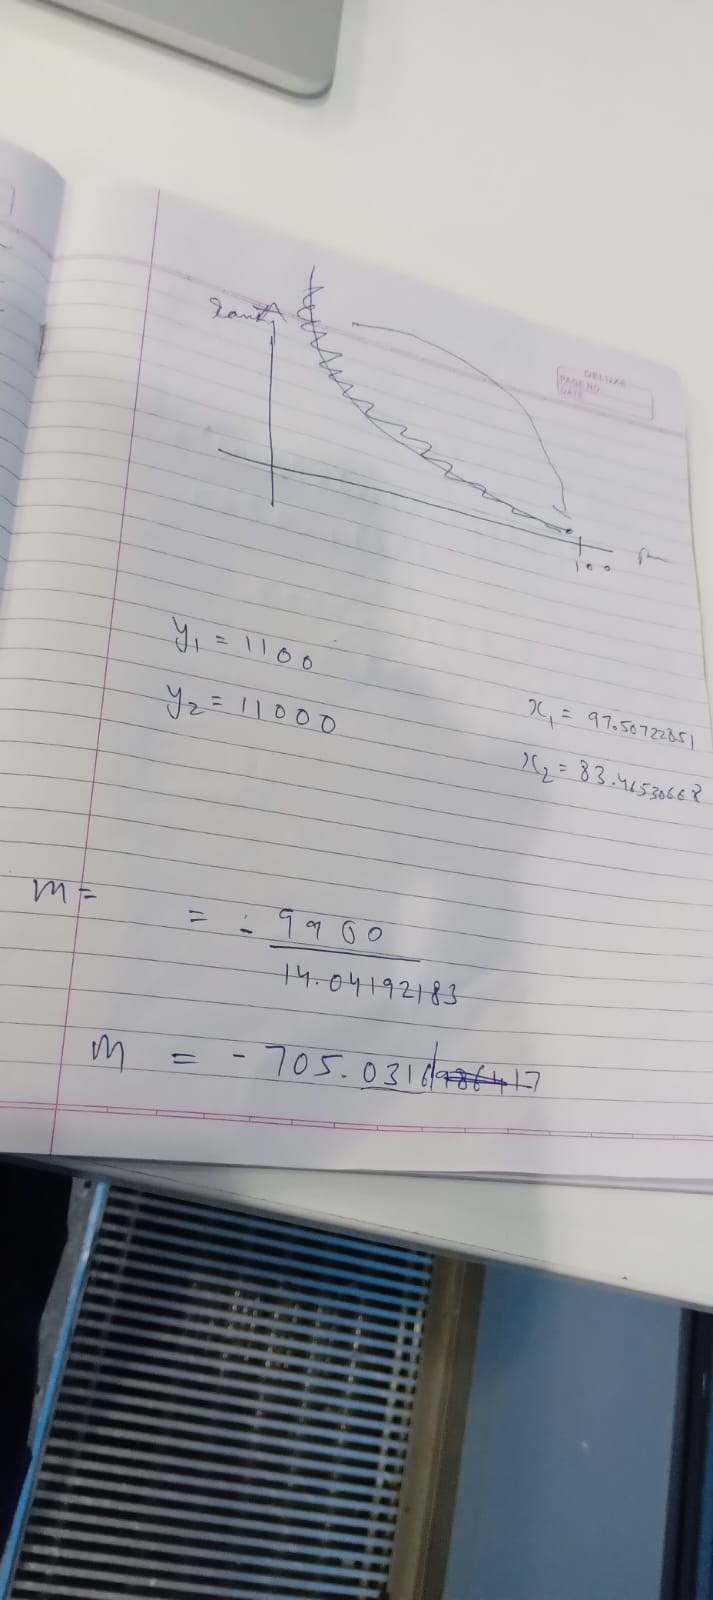 Rank
DELUXE
PAGE NO
DATE
100
y₁ = 1100
y₂ = 11000
x₁ = 97.50722851
x₂ = 83.46530668
m =
= - 9900
14.04192183
m = - 705.0316